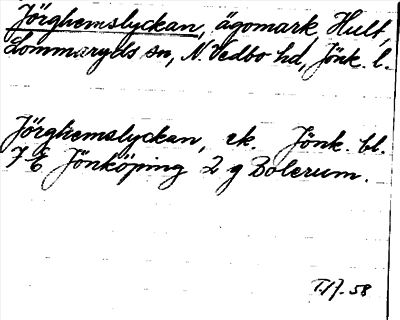 Jörghemslyckan, ägomark, Hult,
Lommaryds sn, N. Vedbo hd, Jönk. l.
Jörghemslyckan, ek. Jönk. bl.
7 E Jönköping 2 g Bolerum.